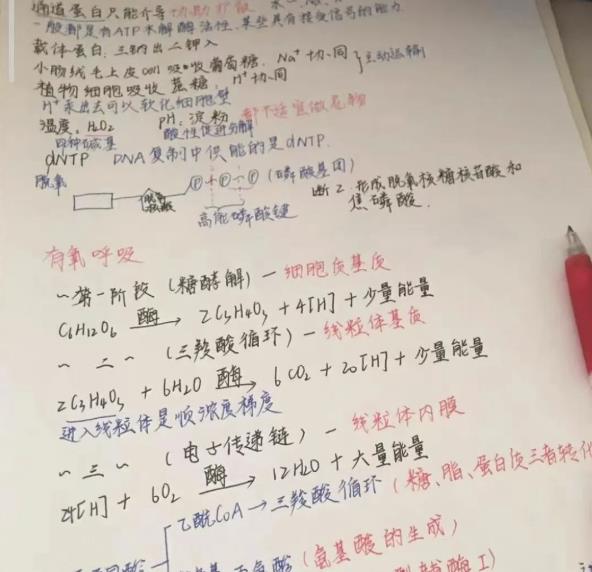 通道蛋白只能介导 协助扩散
一般都是有ATP水解酶活性,某些具有接受信号的能力
载体蛋白:三钠出二钾入
小肠绒毛上皮cell 吸收葡萄糖,Na⁺协同 } 主动运输
植物细胞吸收蔗糖,H⁺协同
H⁺泵出去可以软化细胞壁
温度:H₂O₂ PH:淀粉 都不适宜做底物
四种碱基 酸性促进分解
dNTP DNA复制中供能的是dNTP.
脱氧 Ⓟ+Ⓟ~Ⓟ (磷酸基团)
断2,形成脱氧核糖核苷酸和焦磷酸.
高能磷酸键
有氧呼吸
~第一阶段(糖酵解)—细胞质基质
C₆H₁₂O₆ 酶→ 2C₃H₄O₃ + 4[H] + 少量能量
~ 二 ~ (三羧酸循环)—线粒体基质
2C₃H₄O₃ + 6H₂O 酶→ 6CO₂ + 20[H] + 少量能量
进入线粒体是顺浓度梯度
~ 三 ~ (电子传递链)—线粒体内膜
24[H] + 6O₂ 酶→ 12H₂O + 大量能量
乙酰CoA→三羧酸循环(糖、脂、蛋白质三者转化
(氨基酸的生成)